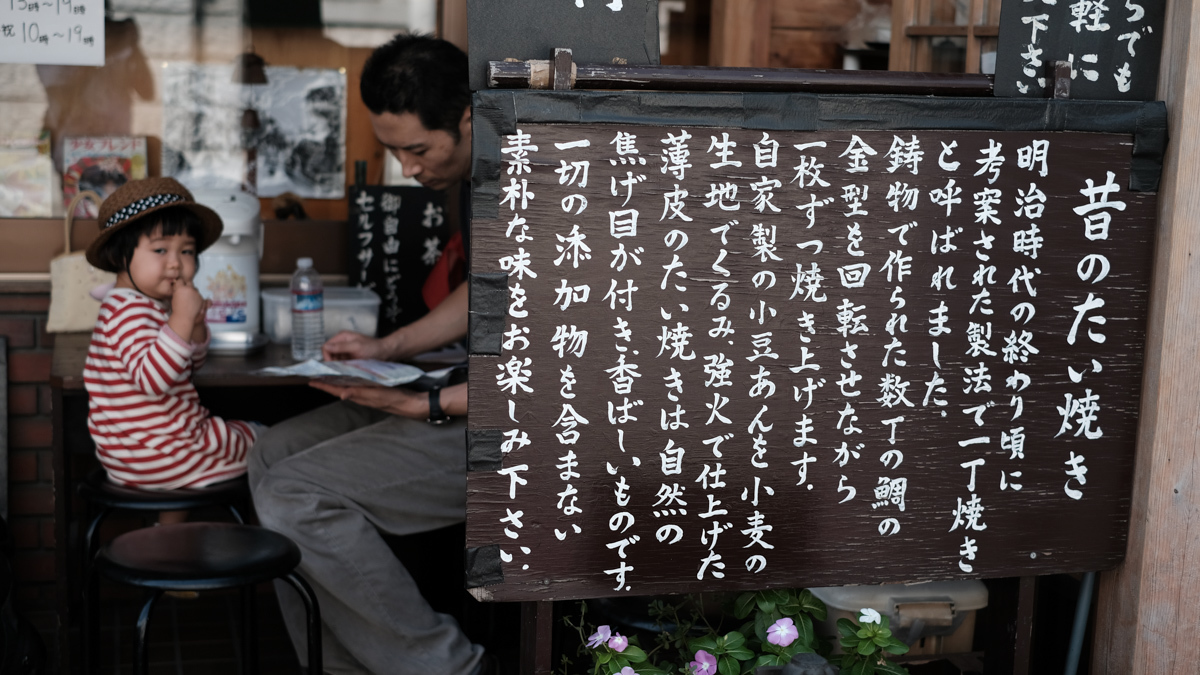 昔のたい焼き
明治時代の終わり頃に
考案された製法で一丁焼き
と呼ばれました。
鋳物で作られた数丁の鯛の
金型を回転させながら
一枚ずつ焼き上げます。
自家製の小豆あんを小麦の
生地でくるみ、強火で仕上げた
薄皮のたい焼きは自然の
焦げ目が付き、香ばしいものです。
一切の添加物を含まない
素朴な味をお楽しみ下さい。
らでも
軽に
下さい
お茶
御自由に
セルフサ
15時〜19時
祝10時〜19時